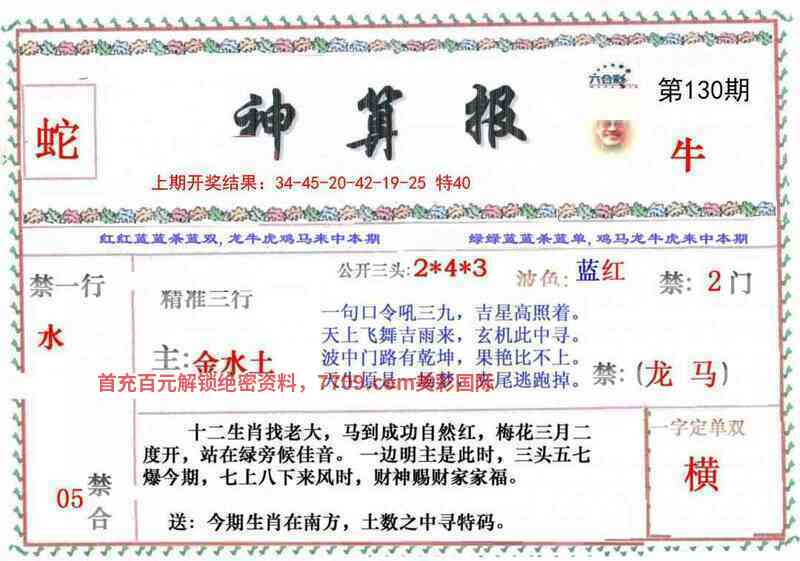 六合彩
第130期
蛇
神算报
牛
上期开奖结果：34-45-20-42-19-25 特40
红红蓝蓝杀蓝双,龙牛虎鸡马来中本期
绿绿蓝蓝杀蓝单,鸡马龙牛虎来中本期
禁一行
水
精准三行
主:金水土
公开三头:2*4*3
波色:蓝红
禁:2门
一句口令吼三九，吉星高照着。
天上飞舞吉雨来，玄机此中寻。
波中门路有乾坤，果艳比不上。
首充百元解锁绝密资料，7709.com美彩国际
禁:(龙 马)
05
禁合
十二生肖找老大，马到成功自然红，梅花三月二
度开，站在绿旁候佳音。 一边明主是此时，三头五七
爆今期，七上八下来风时，财神赐财家家福。
送：今期生肖在南方，土数之中寻特码。
一字定单双
横